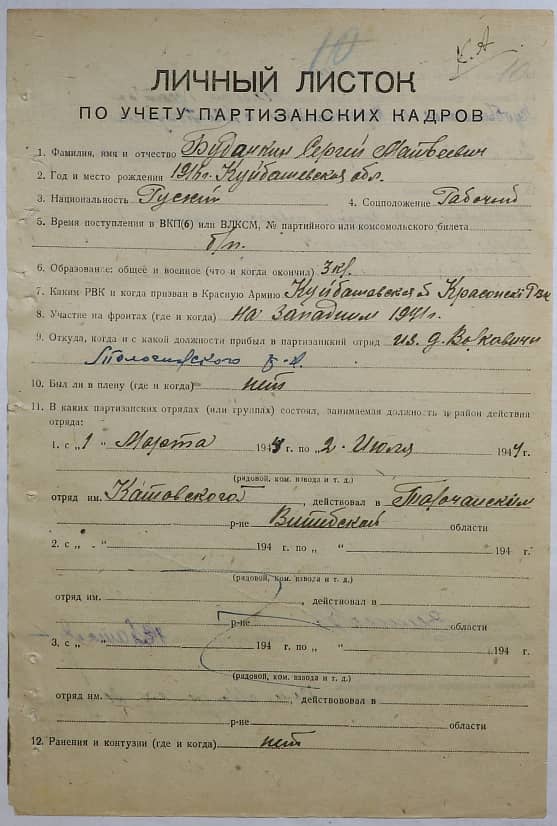 10
К.А
10
ЛИЧНЫЙ ЛИСТОК
ПО УЧЕТУ ПАРТИЗАНСКИХ КАДРОВ
1. Фамилия, имя и отчество Буданкин Сергей Матвеевич
2. Год и место рождения Куйбашевская обл.
3. Национальность Руский 4. Соцположение Рабочий
5. Время поступления в ВКП(б) или ВЛКСМ, № партийного или комсомольского билета
б/п.
6. Образование: общее и военное (что и когда окончил) 3 кл.
7. Каким РВК и когда призван в Красную Армию Куйбашовская об
8. Участие на фронтах (где и когда) на Западном 1941 г.
9. Откуда, когда и с какой должности прибыл в партизанкий отряд из д. Волковичи
Толочинского р-а.
10. Был ли в плену (где и когда) нет
11. В каких партизанских отрядах (или группах) состоял, занимаемая должность и район действия
отряда:
1. с „ 1 “ Марта 1944 г. по „ 2 · Июля 1944 г.
(рядовой, ком. взвода и т. д.)
отряд им. Катовского, действовал в Толочанским
р-не Витебской области
2. с „ “ 194 г. по „ “ 194 г.
(рядовой, ком. взвода и т. д.)
отряд им. , действовал в
р-не области
3. с „ “ 194 г. по „ “ 194 г.
(рядовой, ком. взвода и т. д.)
отряд им. , действововал в
р-не области
12. Ранения и контузии (где и когда) нет